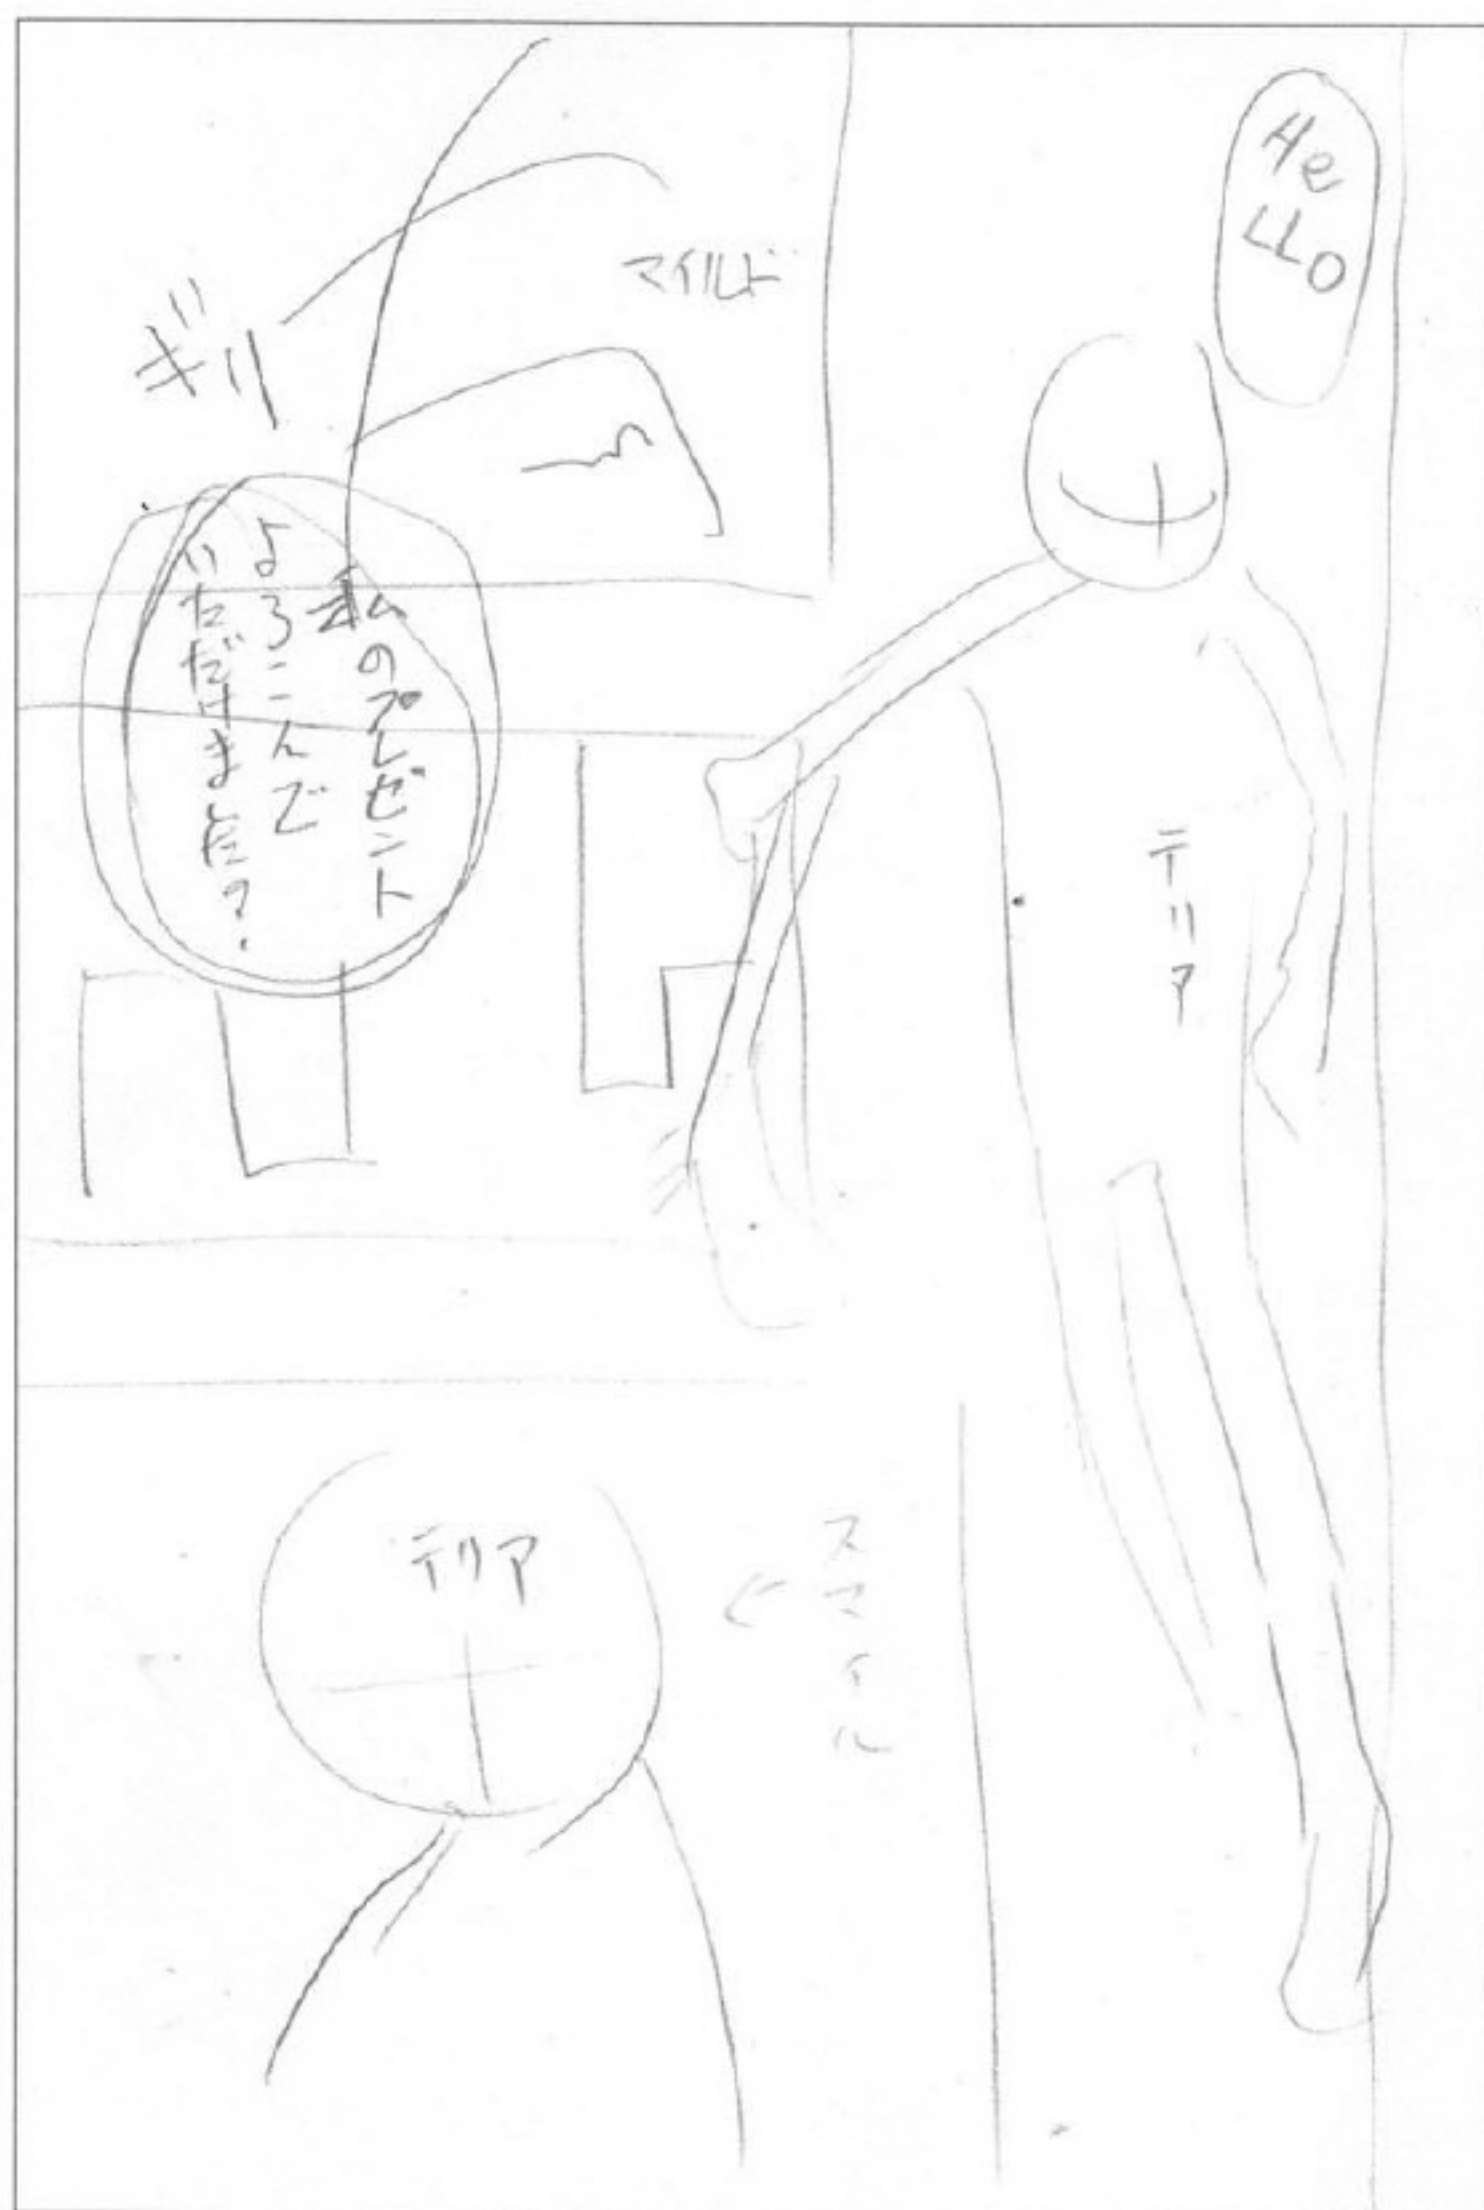 HeLLO
テリア
マイルド
ギリ
私のプレゼント
よろこんで
いただけました?
スマイル
テリア